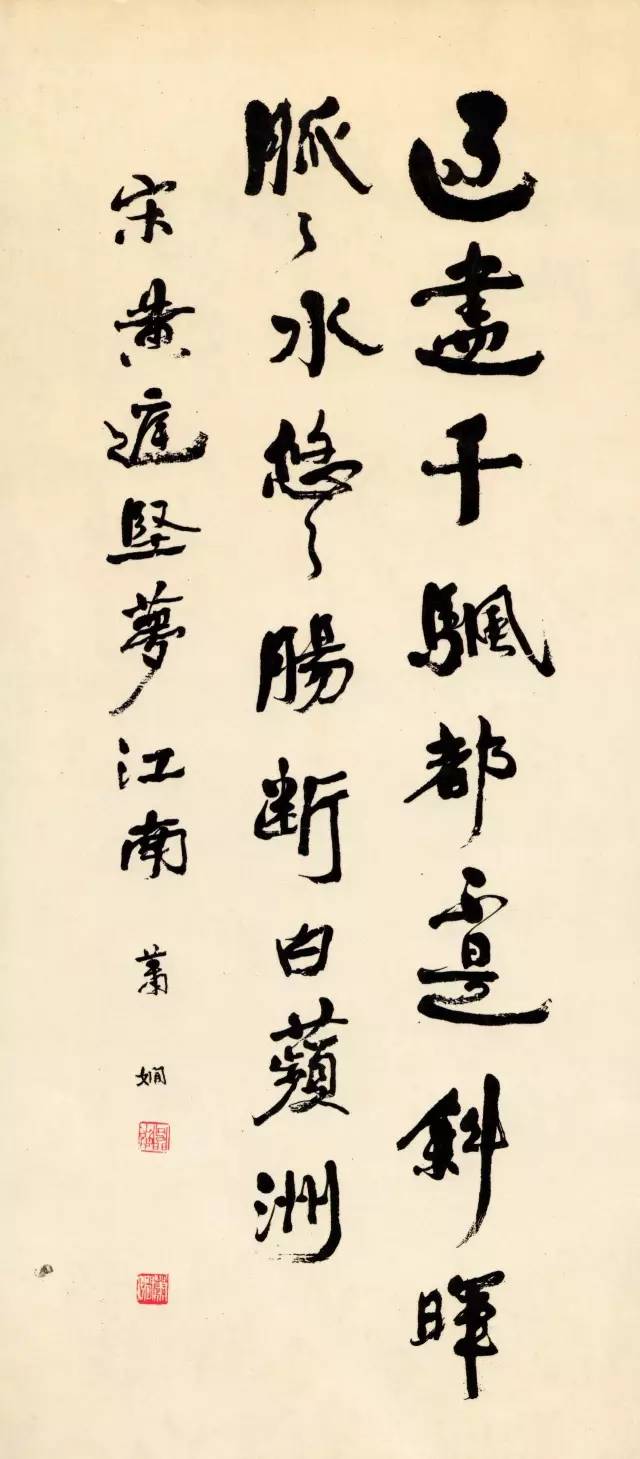 過盡千颿都不是斜暉
脈々水悠々腸断白蘋洲
宋黄庭堅夢江南 蕭嫻